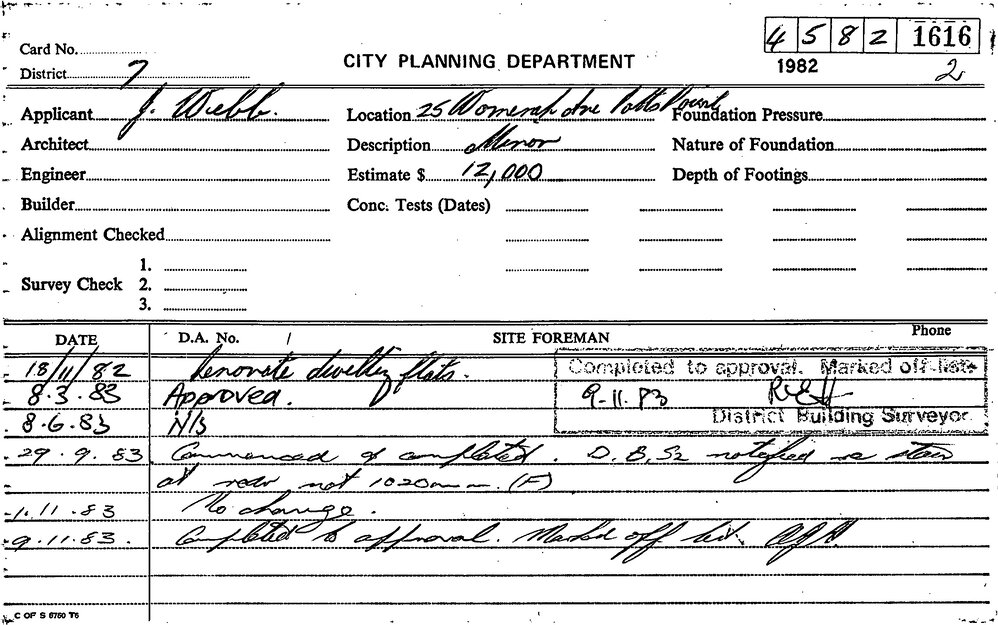 4 5 8 2 1616
Card No.
CITY PLANNING DEPARTMENT
1982
2
District 7
Applicant J. Webb.
Location 25 Womerah Ave Potts Point
Foundation Pressure
Architect
Description Minor
Nature of Foundation
Engineer
Estimate $ 12,000
Depth of Footings
Builder
Conc. Tests (Dates)
Alignment Checked
Survey Check 1.
2.
3.
DATE D.A. No. SITE FOREMAN Phone
18/11/82 Renovate dwelling flats.
Completed to approval. Marked off list
8.3.83 Approved.
9.11.83
8.6.83 N/S
District Building Surveyor
29.9.83 Commenced & completed. D.B.S2 notified re stair
at rear not 1020mm. (F)
1.11.83 No change.
9.11.83. Completed to approval. Marked off list.
C OF S 6760 T6